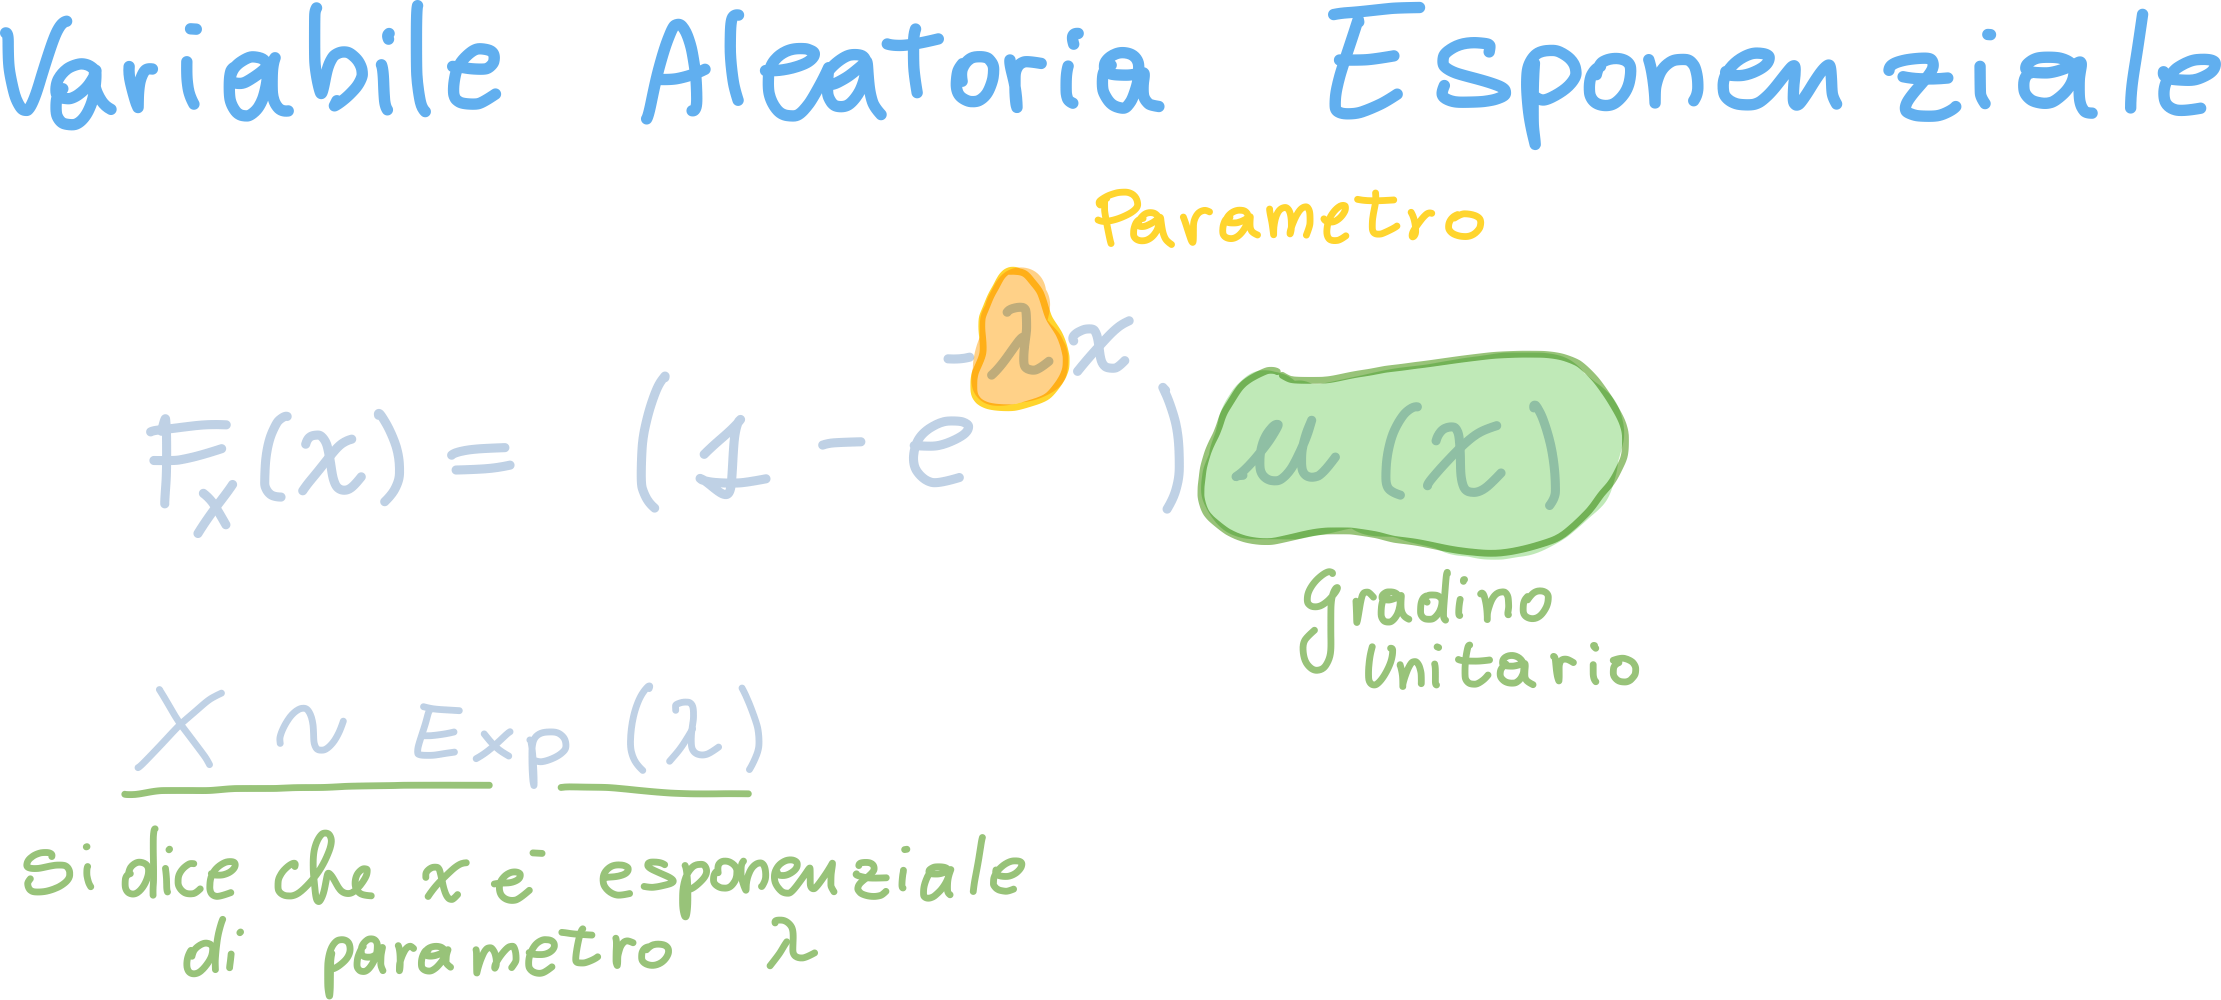 Variabile Aleatoria Esponenziale
Parametro
F_X(x) = (1 - e^{-λx}) u(x)
Gradino
Unitario
X ~ Exp (λ)
Si dice che x è esponenziale
di parametro λ